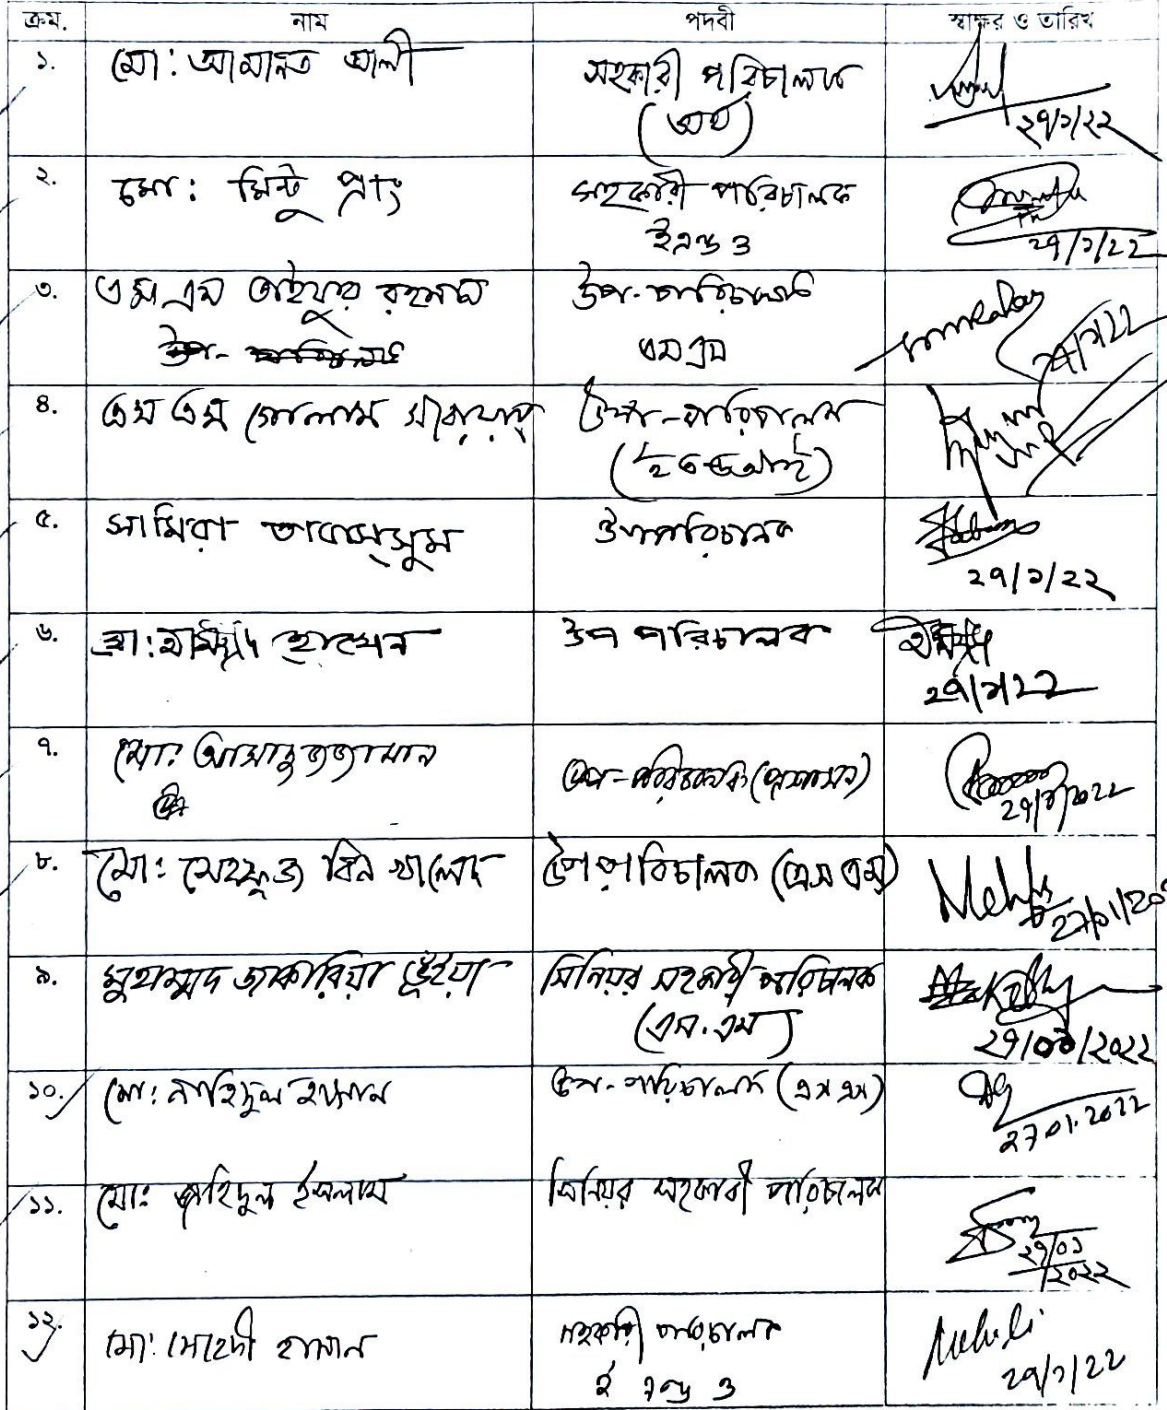 ক্রম. নাম পদবী স্বাক্ষর ও তারিখ
১. মো: আমানত আলী সহকারী পরিচালক
(অর্থ) ২৭/১/২২
২. মো: মিন্টু প্রাং সহকারী পরিচালক
ইএন্ড ও ২৭/১/২২
৩. এস এম তাইফুর রহমান উপ-পরিচালক
এস এম ২৭/১/২২
৪. এস এম গোলাম সারোয়ার উপ-পরিচালক
৫. সামিরা তাবাস্সুম উপপরিচালক
২৭/১/২২
৬. হোসেন উপ পরিচালক
২৭/১/২২
৭. মো: আসাদুজ্জামান উপ-পরিচালক (প্রশাসন)
২৭/১/২০২২
৮. মো: মেহফুজ বিন খালেদ উপপরিচালক (এস এম)
27/01/20
৯. মুহাম্মদ জাকারিয়া ভূঁইয়া সিনিয়র সহকারী পরিচালক
(এস.এম) ২৭/০১/২০২২
১০. মো: নাহিদুল হাসান উপ-পরিচালক (এস এম)
27.01.2022
১১. মো: জাহিদুল ইসলাম সিনিয়র সহকারী পরিচালক
২৭/০১
/২০২২
১২. মো: মেহেদী হাসান সহকারী পরিচালক
ই এন্ড ও ২৭/১/২২